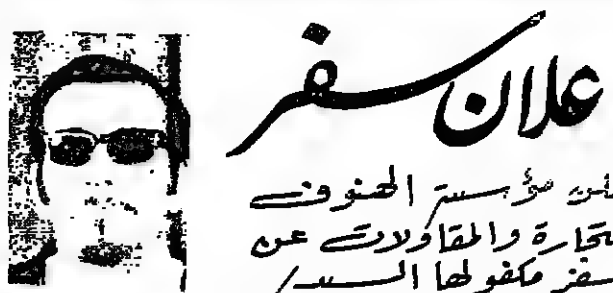 علان سفر
لن مؤسسة الهنوف
تجارة والمقاولات عن
سفر مكفولها السيد/